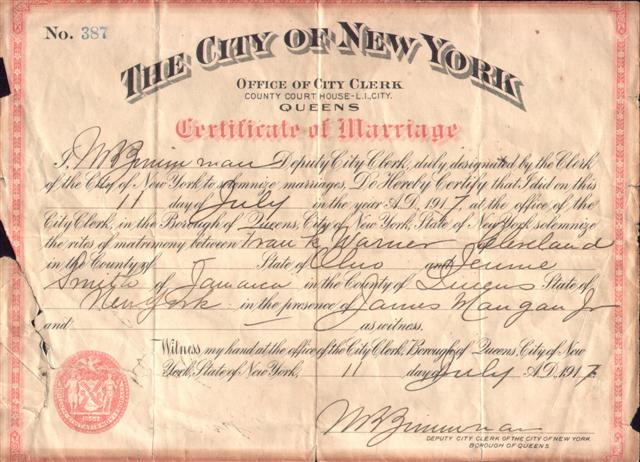 No. 387
THE CITY OF NEW YORK
OFFICE OF CITY CLERK
COUNTY COURT HOUSE-L.I.CITY.
QUEENS
Certificate of Marriage
I, W R Zimmerman Deputy City Clerk, duly designated by the Clerk
of the City of New York to solemnize marriages, Do Hereby Certify that I did on this
11 day of July in the year A.D. 1917 at the office of the
City Clerk, in the Borough of Queens, City of New York, State of New York solemnize
the rites of matrimony between Frank Warner Cleveland
in the County of State of Ohio and Jennie
Smith of Jamaica in the County of Queens State of
New York in the presence of James Mangan Jr
and — as witness.
Witness my hand at the office of the City Clerk, Borough of Queens, City of New
York, State of New York, 11 day of July A.D. 1917.
W R Zimmerman
DEPUTY CITY CLERK OF THE CITY OF NEW YORK
BOROUGH OF QUEENS